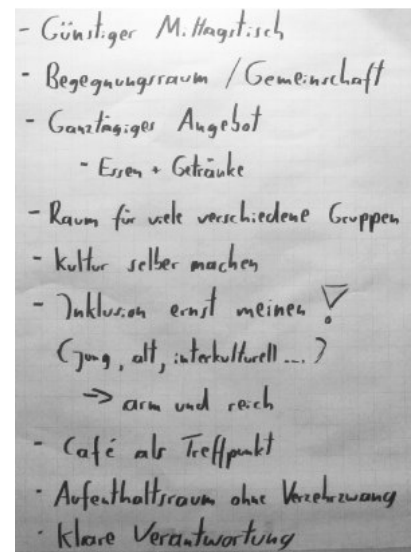 - Günstiger Mittagstisch
- Begegnungsraum / Gemeinschaft
- Ganztägiges Angebot
- Essen + Getränke
- Raum für viele verschiedene Gruppen
- Kultur selber machen
- Inklusion ernst meinen !
(jung, alt, interkulturell ....)
→ arm und reich
- Café als Treffpunkt
- Aufenthaltsraum ohne Verzehrzwang
- Klare Verantwortung